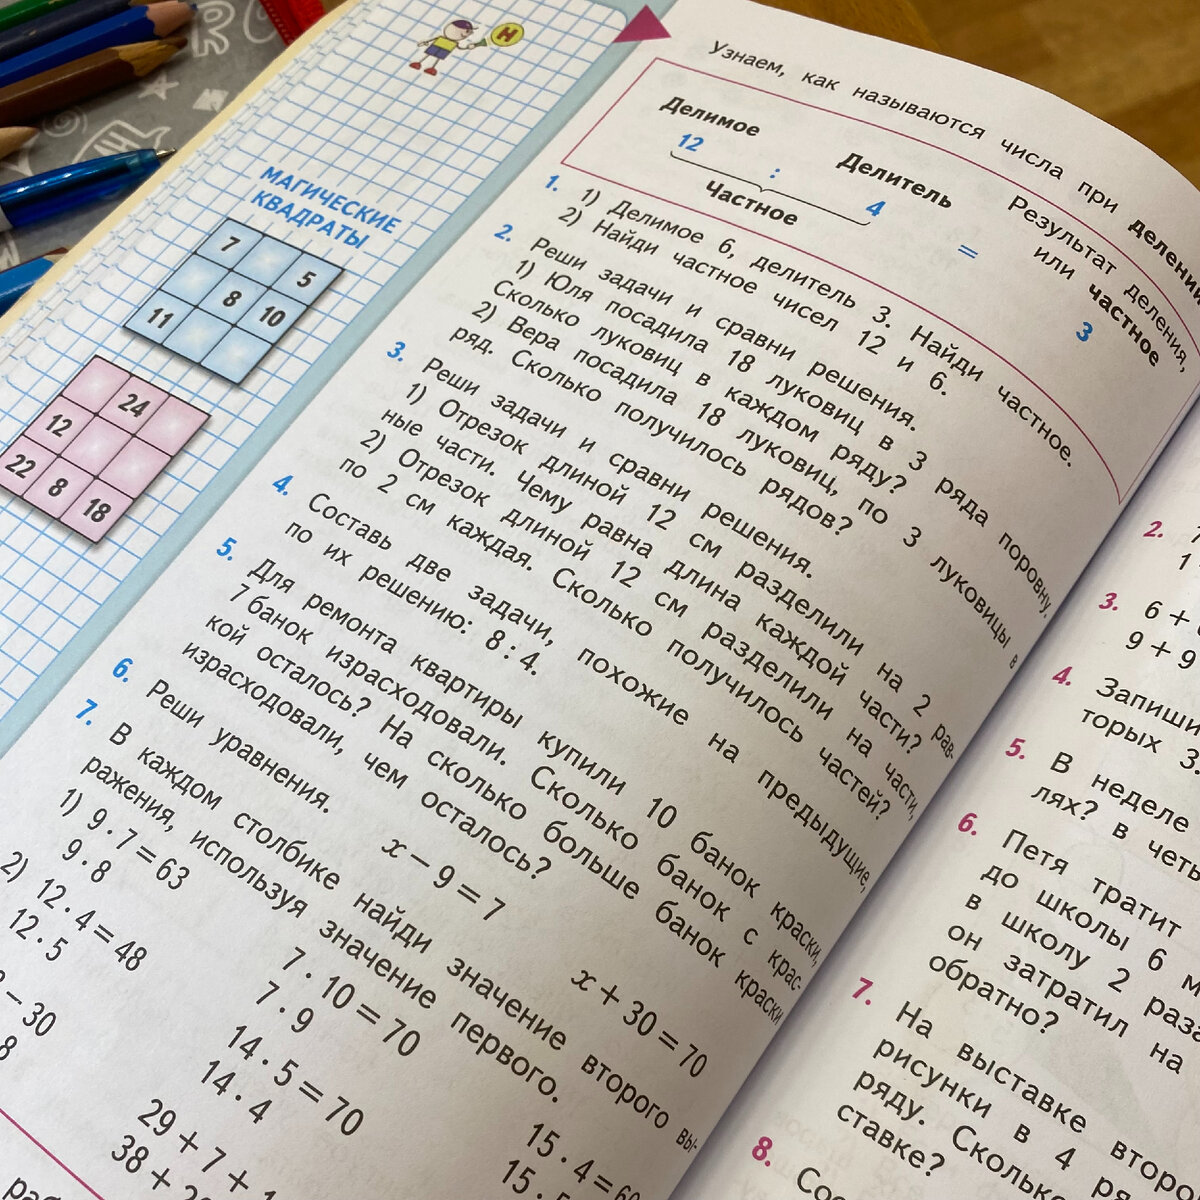 Н
МАГИЧЕСКИЕ
КВАДРАТЫ
7 5
8 10
11
24
12
22 8 18
Узнаем, как называются числа при делении
Делимое Делитель Результат деления,
или частное
12 : 4 = 3
Частное
1. 1) Делимое 6, делитель 3. Найди частное.
2) Найди частное чисел 12 и 6.
2. Реши задачи и сравни решения.
1) Юля посадила 18 луковиц в 3 ряда поровну.
Сколько луковиц в каждом ряду?
2) Вера посадила 18 луковиц, по 3 луковицы в
ряд. Сколько получилось рядов?
3. Реши задачи и сравни решения.
1) Отрезок длиной 12 см разделили на 2 рав-
ные части. Чему равна длина каждой части?
2) Отрезок длиной 12 см разделили на части,
по 2 см каждая. Сколько получилось частей?
4. Составь две задачи, похожие на предыдущие,
по их решению: 8 : 4.
5. Для ремонта квартиры купили 10 банок краски,
7 банок израсходовали. Сколько банок с крас-
кой осталось? На сколько больше банок краски
израсходовали, чем осталось?
6. Реши уравнения.
x − 9 = 7 x + 30 = 70
7. В каждом столбике найди значение второго вы-
ражения, используя значение первого.
1) 9 · 7 = 63 7 · 10 = 70 15 · 4 = 60
9 · 8 7 · 9 15 · 5
2) 12 · 4 = 48 14 · 5 = 70
12 · 5 14 · 4
− 30 29 + 7 + 1
8 38 +
2.
1
3. 6 +
9 + 9
4. Запиши
торых 3.
5. В неделе
лях? в четы
6. Петя тратит
до школы 6 м
в школу 2 раза
он затратил на
обратно?
7. На выставке второ
рисунки в 4 ря
ряду. Сколько
ставке?
8. Сос